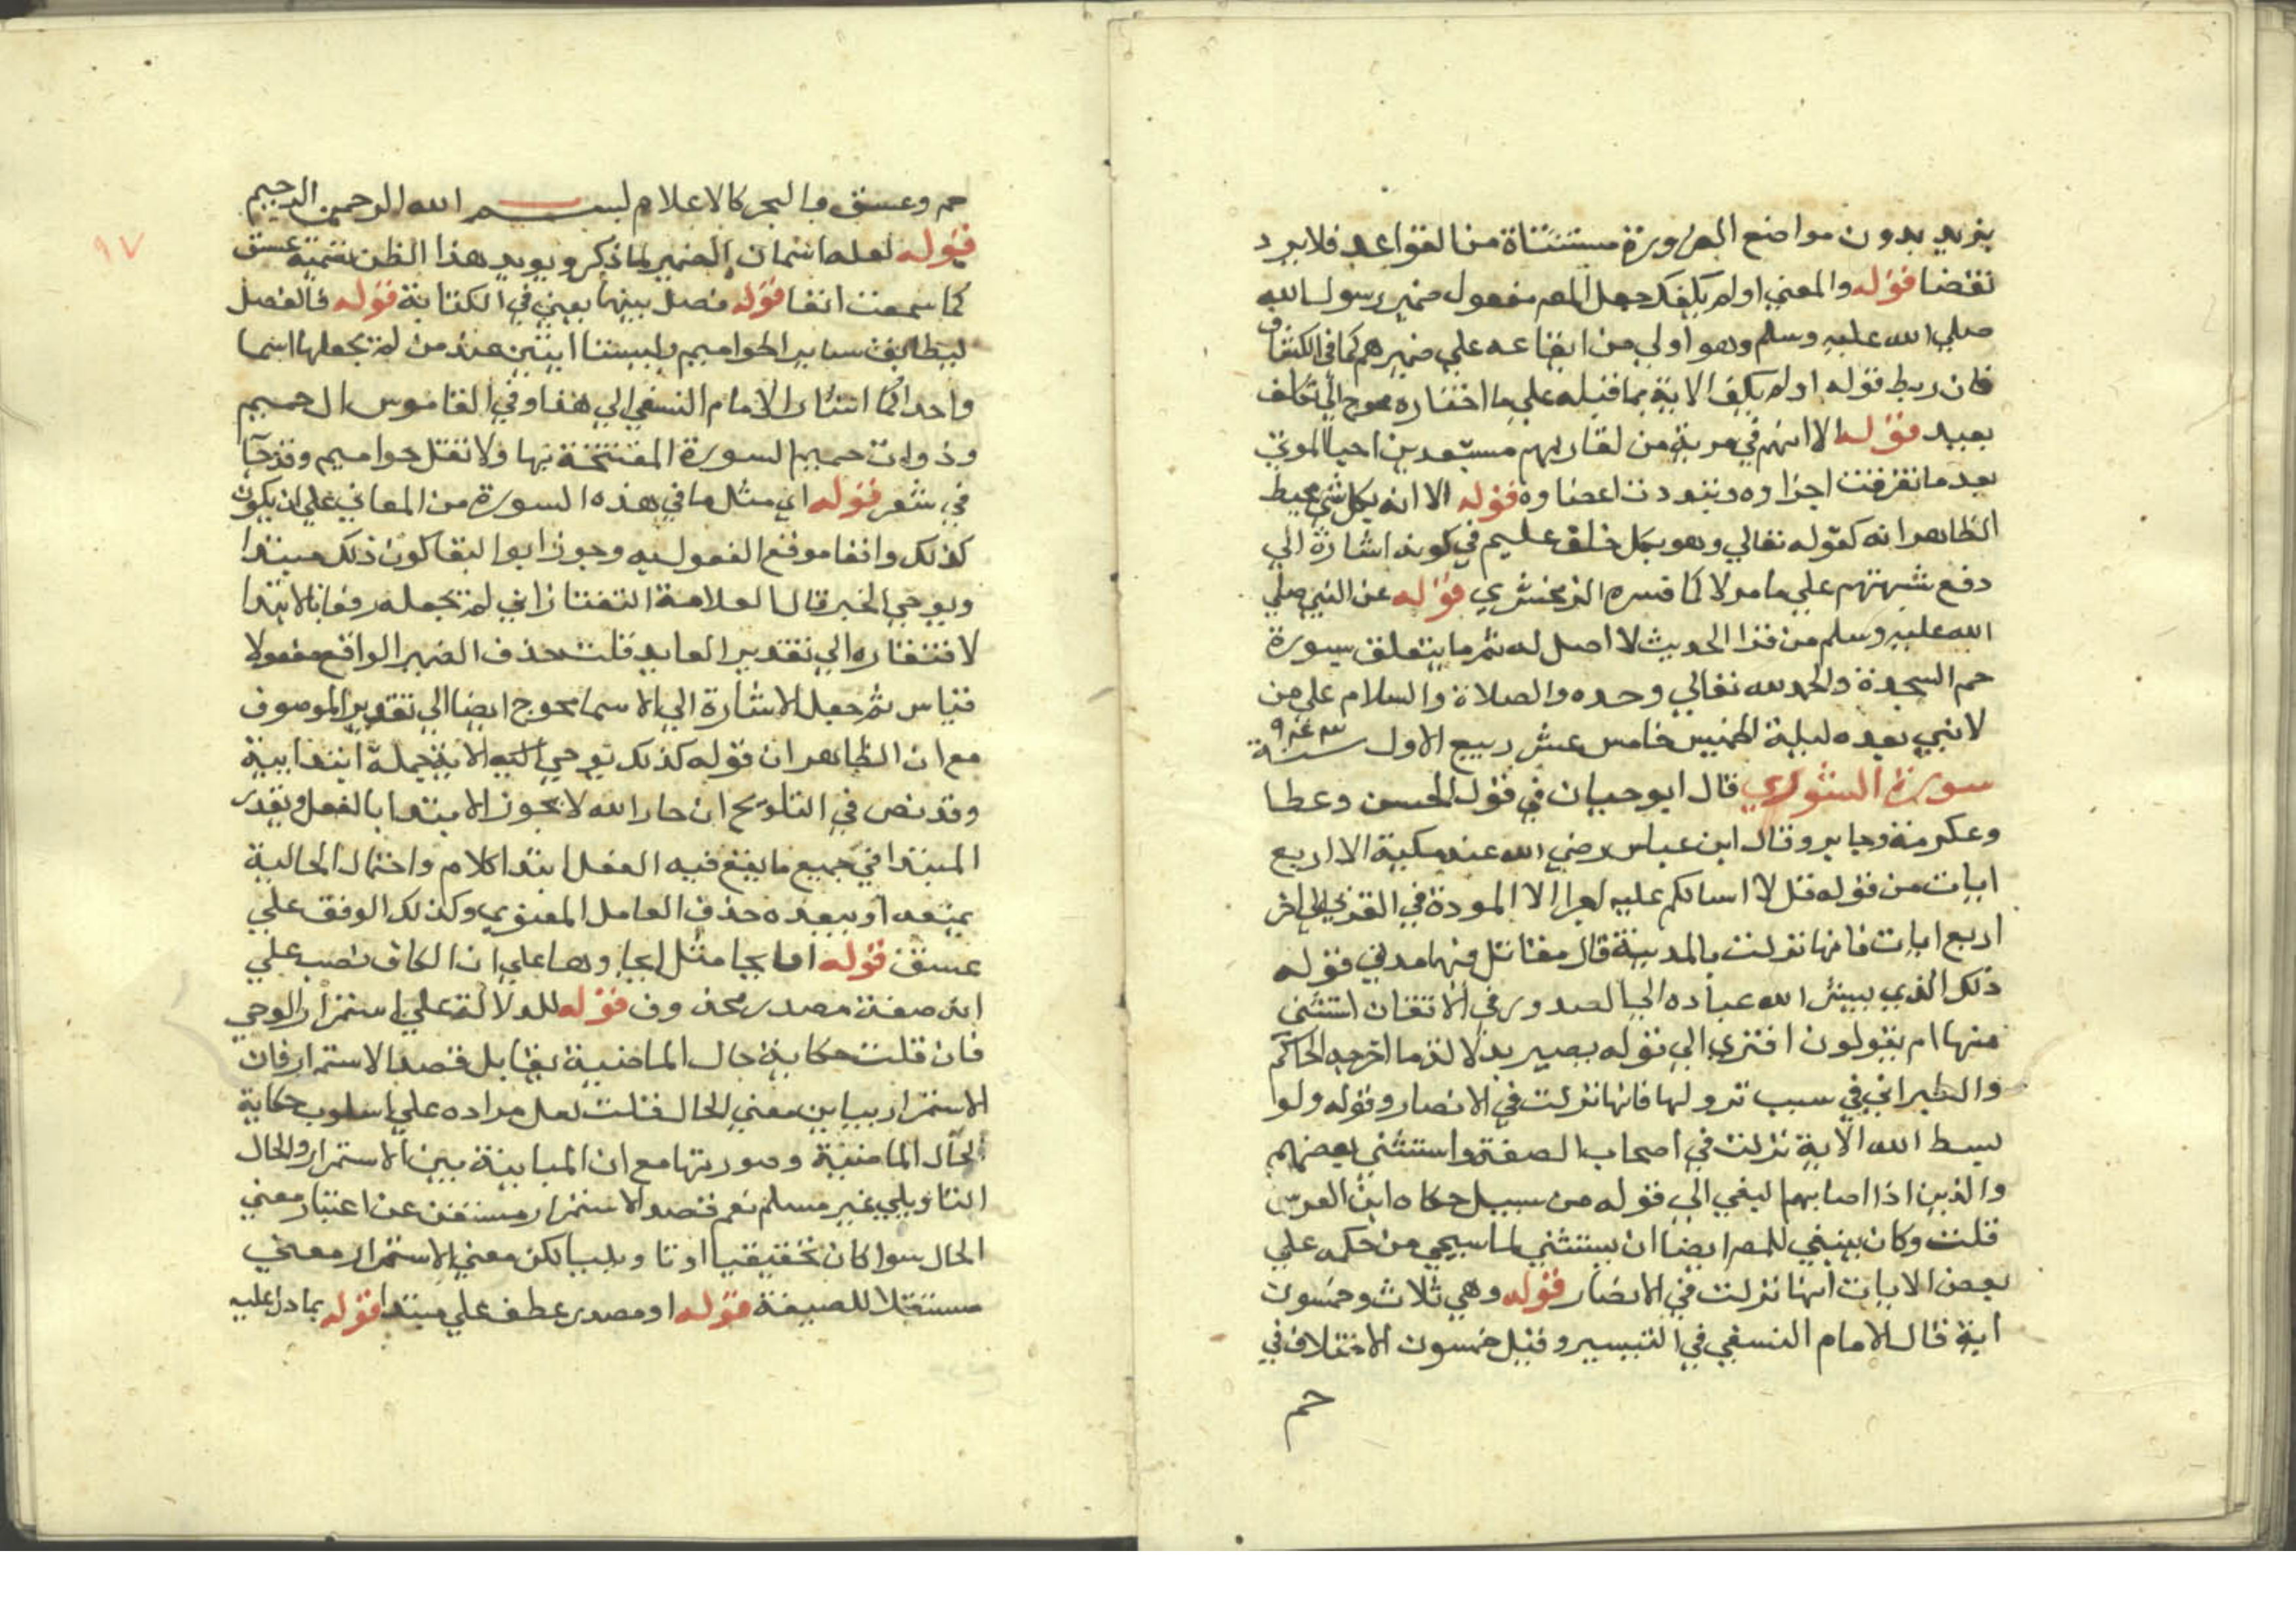 يزيد بدون مواضع الضرورة مستثناة من القواعد فلا يرد
نقضا قوله والمعني اولم يكفك جعل المص مفعول ضمير رسول الله
صلي الله عليه وسلم وهو اولي من ايقاعه علي ضميرهم كما في الكشاف
فان ربط قوله اولم يكف الاية بما قبله علي ما اختاره محوج الي تكلف
بعيد قوله الا انهم في مرية من لقا ربهم مستبعدين احيا الموتي
بعد ما تفرقت اجزاوه وتبددت اعضاوه قوله الا انه بكل شي محيط
الظاهر انه كقوله تعالي وهو بكل خلق عليم في كونه اشارة الي
دفع شبهتهم علي ما مر لا كما فسره الزمخشري قوله عن النبي صلي
الله عليه وسلم من قرا الحديث لا اصل له تم ما يتعلق بسورة
حم السجدة والحمد لله تعالي وحده والصلاة والسلام علي من
لا نبي بعده ليلة الخميس خامس عشر ربيع الاول سنة
سورة الشوري قال ابو حيان في قول الحسن وعطا
وعكرمة وجابر وقال ابن عباس رضي الله عنه مكية الا اربع
ايات من قوله قل لا اسالكم عليه اجرا الا المودة في القربي الي اخر
اربع ايات فانها نزلت بالمدينة قال مقاتل فيها مدني قوله
ذلك الذي يبشر الله عباده الي الصدور في الاتقان استثني
منها ام يقولون افتري الي قوله بصير بدلالة ما اخرجه الحاكم
والطبراني في سبب نزولها فانها نزلت في الانصار وقوله ولو
بسط الله الاية نزلت في اصحاب الصفة واستثني بعضهم
والذين اذا اصابهم البغي الي قوله من سبيل حكاه ابن الفرس
قلت وكان ينبغي للمص ايضا ان يستثني لما سيجي من حكمه علي
بعض الايات انها نزلت في الانصار قوله وهي ثلاث وخمسون
اية قال الامام النسفي في التيسير وقيل خمسون الاختلاف في
حم
٩٧
حم وعسق والبحر كالاعلام بسم الله الرحمن الرحيم
قوله لعله اسمان الضمير لما ذكر ويويد هذا الظن تسمية عسق
كما سمعت انفا قوله فصل بينهما يعني في الكتابة قوله فالفصل
ليطابق ساير الحواميم وليستا ايتين عند من لم يجعلها اسما
واحدا كما اشار الامام النسفي الي هذا وفي القاموس ال حميم
وذوات حميم السورة المفتتحة بها ولا تقل حواميم وقد جا
في شعر قوله اي مثل ما في هذه السورة من المعاني علي ان يكون
كذلك واقعا موقع المفعول به وجوز ابو البقا كون ذلك مبتدا
ويوحي الخبر قال العلامة التفتازاني لم نجعله رفعا بالابتدا
لافتقاره الي تقدير العايد قلت حذف الضمير الواقع مفعولا
قياس ثم جعل الاشارة الي الاسما محوج ايضا الي تقدير الموصوف
مع ان الظاهر ان قوله كذلك يوحي اليه الاية جملة ابتدايية
وقد نص في التلويح ان جار الله لا يجوز الابتدا بالفعل ويقدر
المبتدا في جميع ما يقع فيه الفعل ابتدا كلام واحتمال الحالية
يمنعه او يبعده حذف العامل المعنوي وكذلك الوقف علي
عسق قوله ايحا مثل ايحاوها علي ان الكاف نصب علي
انه صفة مصدر محذوف قوله للدلالة علي استمرار الوحي
فان قلت حكاية حال الماضية يقابل قصد الاستمرار فان
الاستمرار يباين معني الحال قلت لعل مراده علي اسلوب حكاية
الحال الماضية وصورتها مع ان المباينة بين الاستمرار والحال
التاويلي غير مسلم نعم قصد الاستمرار مستغن عن اعتبار معني
الحال سوا كان تحقيقيا او تاويليا لكن معني الاستمرار معني
مستقلا للصيغة قوله او مصدر عطف علي مبتدا قوله بما دل عليه